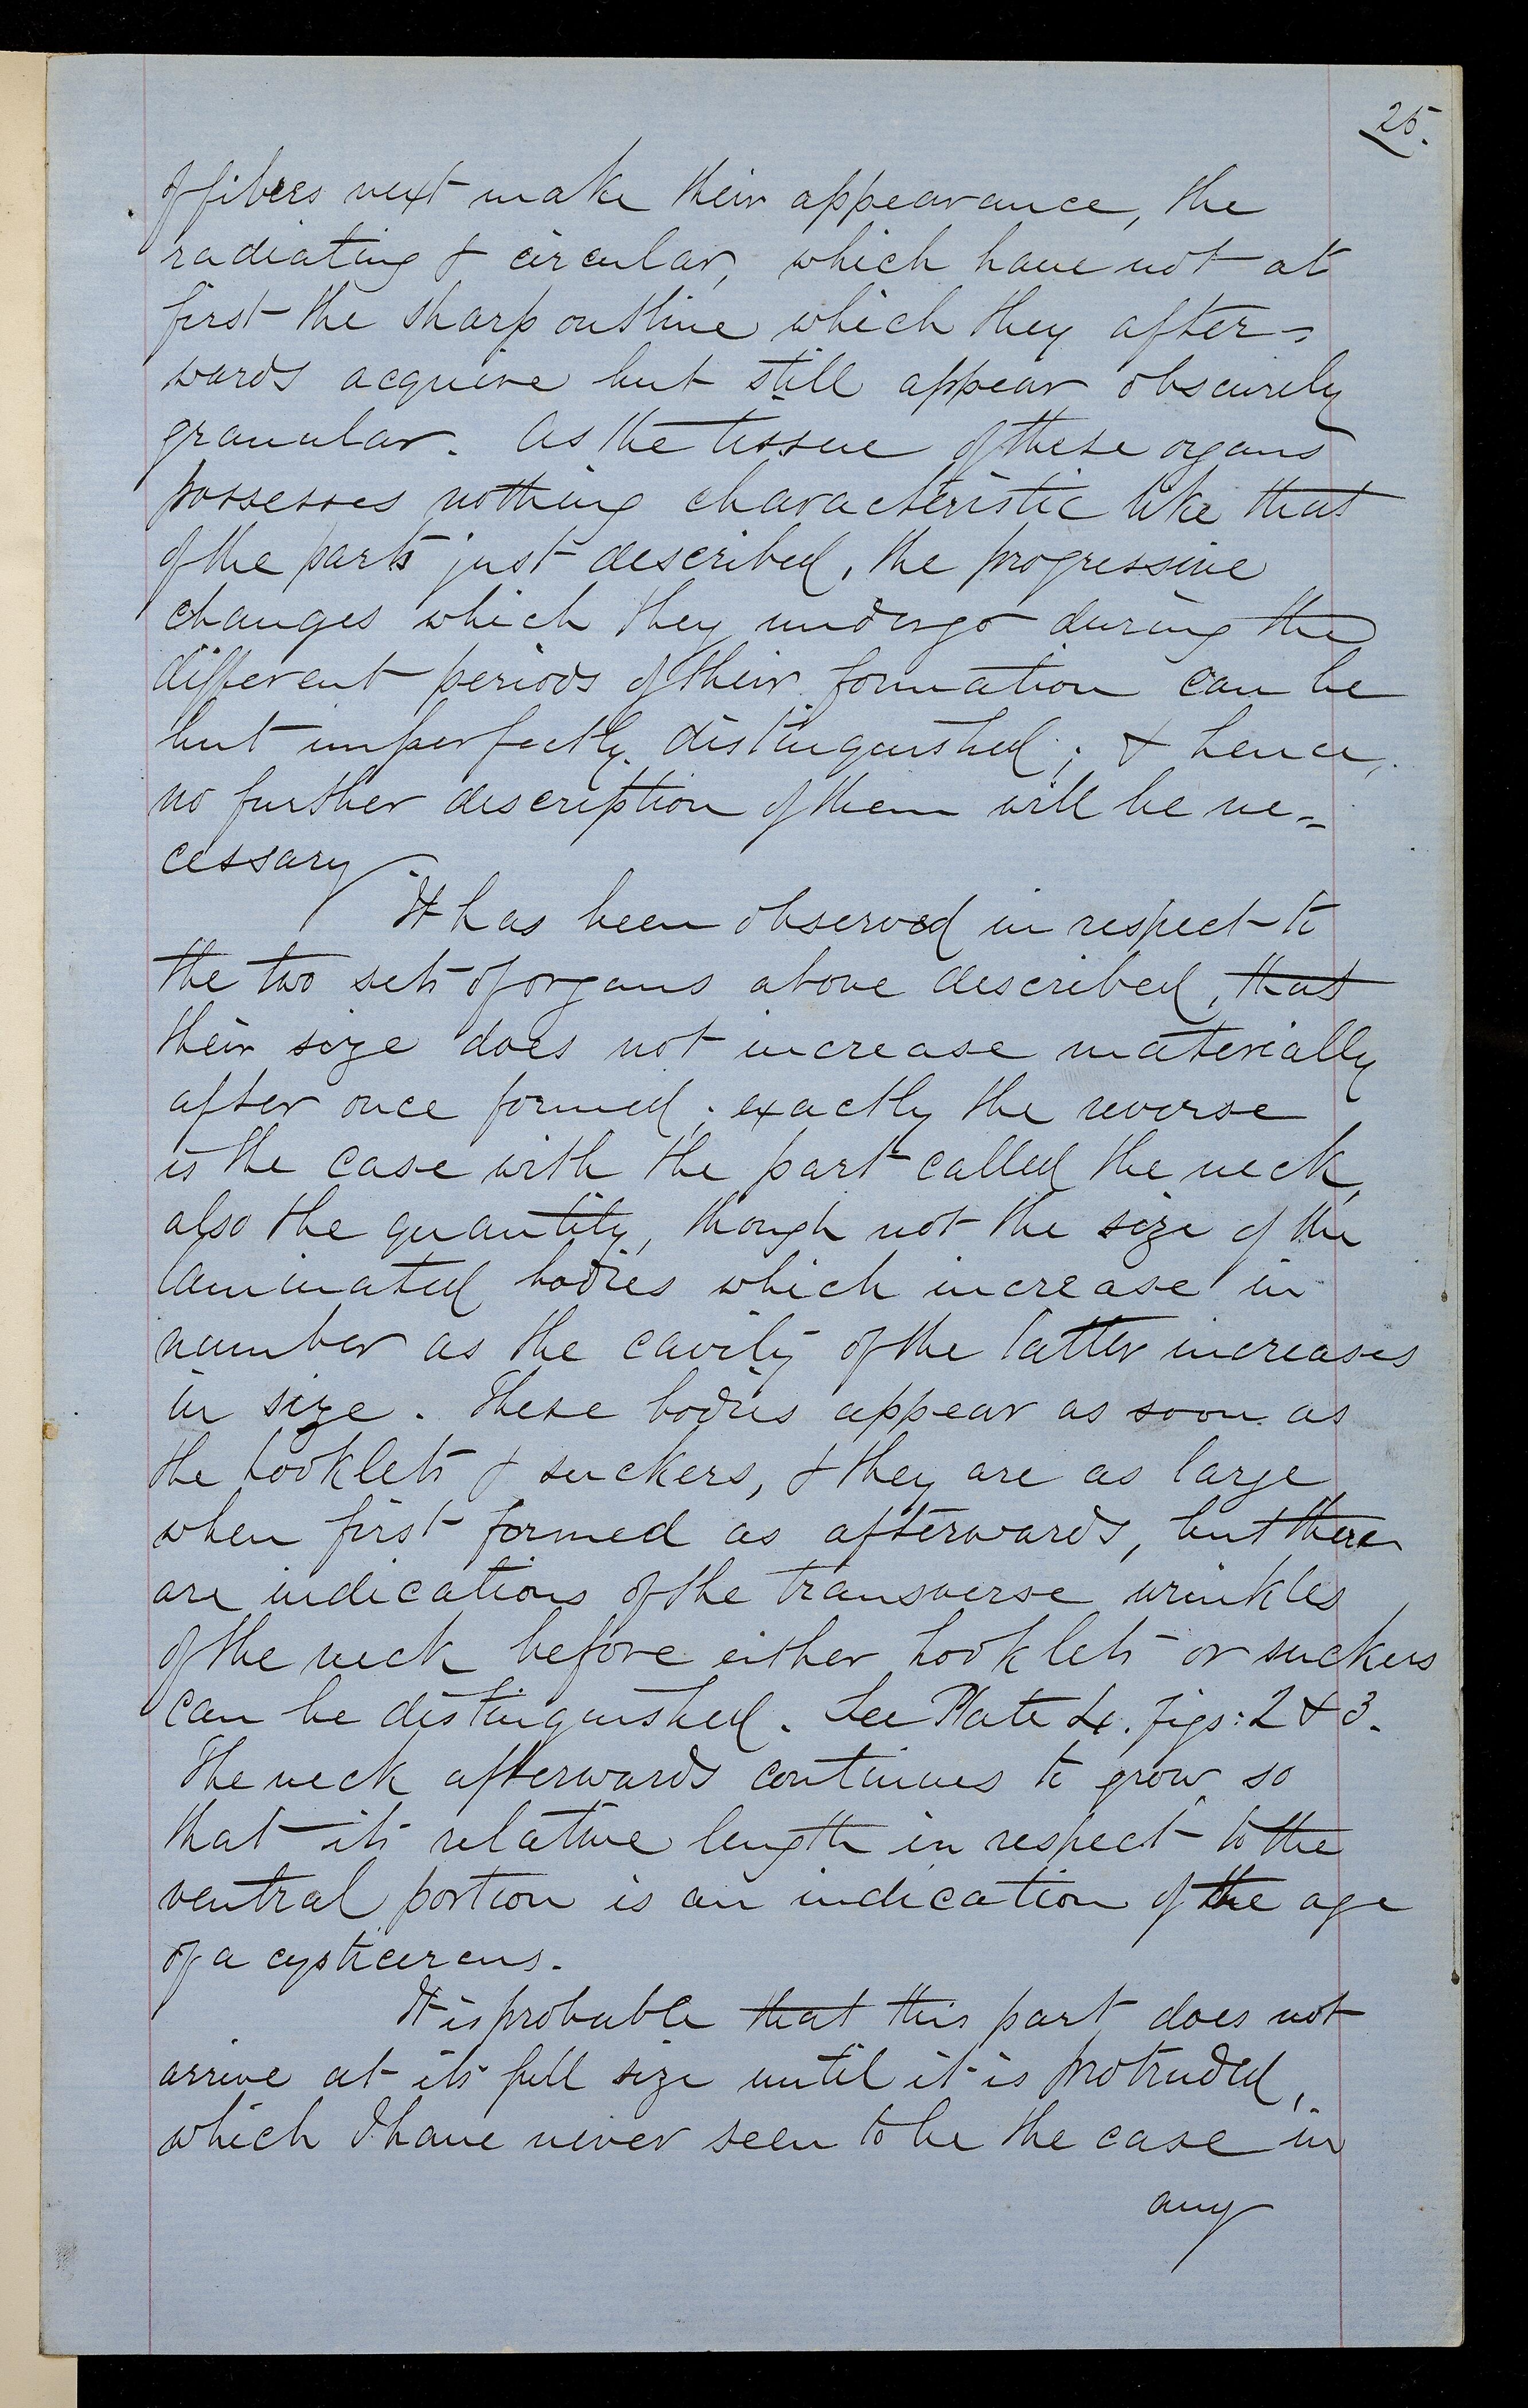 25.
of fibers next make their appearance, the
radiating & circular, which have not at
first the sharp outline which they after-
wards acquire but still appear obscurely
granular. As the tissue of these organs
possesses nothing characteristic like that
of the parts just described, the progressive
changes which they undergo during the
different periods of their formation can be
but imperfectly distinguished; & hence,
no further description of them will be ne-
cessary.
It has been observed in respect to
the two sets of organs above described, that
their size does not increase materially
after once formed; exactly the reverse
is the case with the part called the neck,
also the quantity, though not the size of the
laminated bodies which increase in
number as the cavity of the latter increases
in size. These bodies appear as soon as
the hooklets & suckers, & they are as large
when first formed as afterwards, but there
are indications of the transverse wrinkles
of the neck before either hooklets or suckers
can be distinguished. See Plate 4. figs: 2 & 3.
The neck afterwards continues to grow so
that its relative length in respect to the
ventral portion is an indication of the age
of a cysticercus.
It is probable that this part does not
arrive at its full size until it is protruded,
which I have never seen to be the case in
any